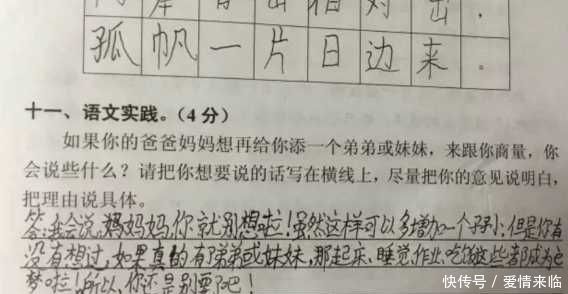 两岸青山相对出.
孤帆一片日边来。
十一、语文实践。(4分)
如果你的爸爸妈妈想再给你添一个弟弟或妹妹，来跟你商量，你
会说些什么？请把你想要说的话写在横线上，尽量把你的意见说明白，
把理由说具体。
答:我会说,妈妈妈,你就别想啦!虽然这样可以多增加一个孩子;但是你有
没有想过,如果真的有弟弟或妹妹,那起床、睡觉、作业、吃饭这些都成为
梦啦!所以,你还是别要了吧!
快传号/爱情来临